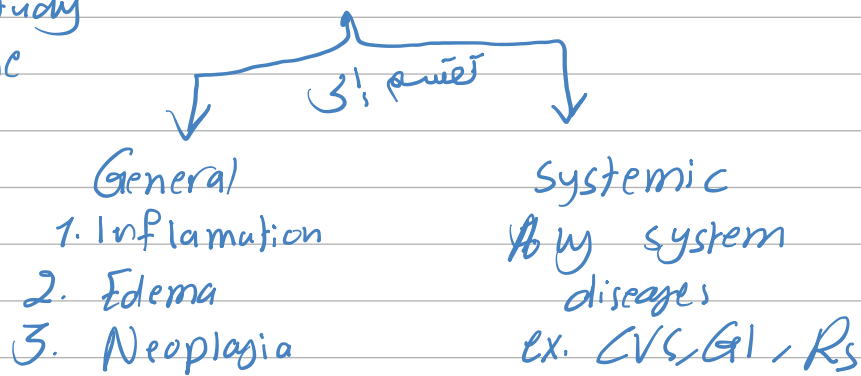 تقسم إلى
General
1. Inflamation
2. Edema
3. Neoplasia
systemic
by system
diseases
ex. CVS, GI, Rs